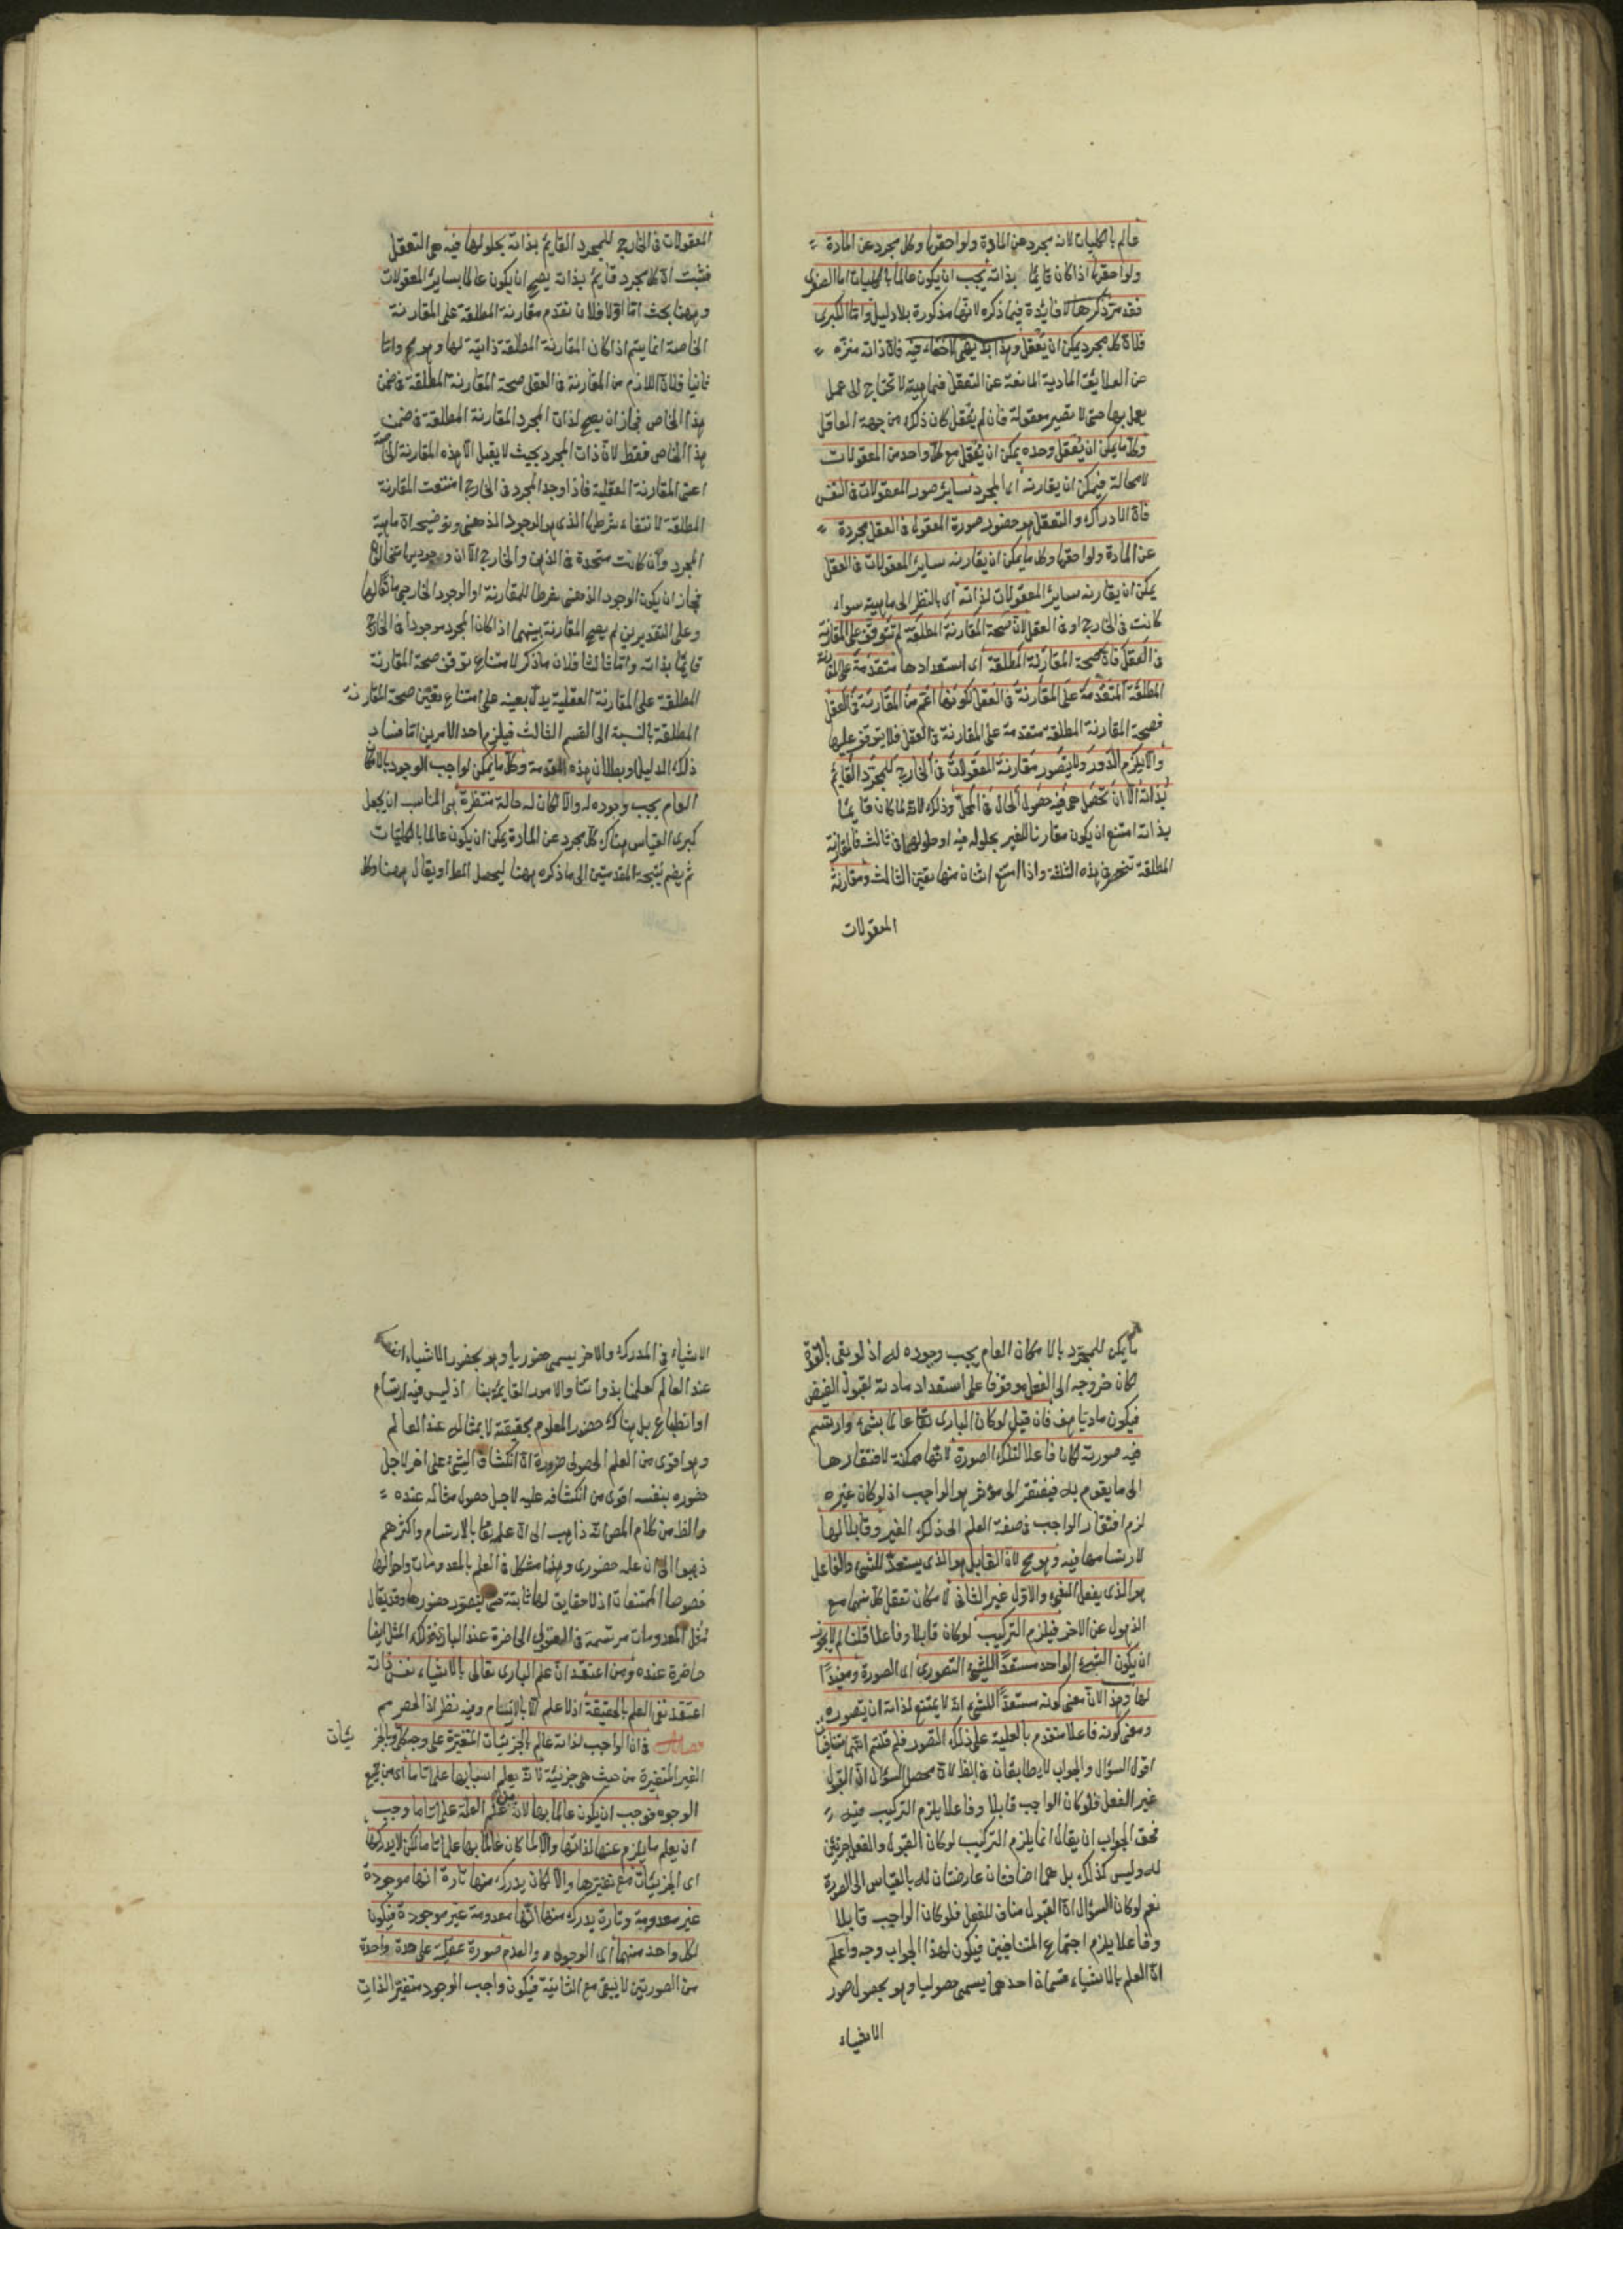 عالم بالكليات لانه مجرد عن المادة ولواحقها وكل مجرد عن المادة
ولواحقها اذا كان قايمًا بذاته يجب ان يكون عالما بالكليات اما الصغرى
فقد مر ذكرها لا فائدة فيما ذكره لانها مذكورة بلا دليل واما الكبرى
فلان كل مجرد يمكن ان يُعقل وهذا بديهى لا خفاء فيه فان ذاته منزه
عن العلايق المادية المانعة عن التعقل فماهيته لا تحتاج الى عمل
يعمل بها حتى لا تصير معقولة فان لم يعقل كان ذلك من جهة العاقل
وكل ما يمكن ان يُعقل وحده يمكن ان يُعقل مع كل واحد من المعقولات
لا محالة فيمكن ان يقارنه اى المجرد ساير صور المعقولات فى النفس
فان الادراك والتعقل هو حضور صورة المعقول فى العقل مجردة
عن المادة ولواحقها وكل ما يمكن ان يقارنه ساير المعقولات فى العقل
يمكن ان يقارنه ساير المعقولات لذاته اى بالنظر الى ماهيته سواء
كانت فى الخارج او فى العقل لان صحة المقارنة المطلقة لم تتوقف على المقارنة
فى العقل فان صحة المقارنة المطلقة اى استعدادها متقدمة على المقارنة
المطلقة المتقدمة على المقارنة فى العقل لكونها اعم من المقارنة فى العقل
فصحة المقارنة المطلقة متقدمة على المقارنة فى العقل فلا يتوقف عليها
والا يلزم الدور ولا يتصور مقارنة المعقولات فى الخارج للمجرد القايم
بذاته الا ان تحصل هى فيه حصول الحال فى المحل وذلك لانه لما كان قايمًا
بذاته امتنع ان يكون مقارنا للغير بحلوله فيه او حلولهما فى ثالث فالمقارنة
المطلقة تنحصر فى هذه الثلثة واذا امتنع اثنان منها تعين الثالث ومقارنة
المعقولات
المعقولات فى الخارج للمجرد القايم بذاته بحلولها فيه هى التعقل
فثبت ان كل مجرد قايم بذاته يصح ان يكون عالما بساير المعقولات
وههنا بحث اما اولا فلان تقدم مقارنة المطلقة على المقارنة
الخاصة انما يتم اذا كان المقارنة المطلقة ذاتية لها وهو مح واما
ثانيا فلان اللازم من المقارنة فى العقل صحة المقارنة المطلقة فى ضمن
هذا الخاص فجاز ان يصح لذات المجرد المقارنة المطلقة فى ضمن
هذا الخاص فقط لان ذات المجرد بحيث لا يقبل الا هذه المقارنة الخاصة
اعنى المقارنة العقلية فاذا وجد المجرد فى الخارج امتنعت المقارنة
المطلقة لانتفاء شرطها الذى هو الوجود الذهنى وتوضيحه ان ماهية
المجرد وان كانت متحدة فى الذهن والخارج الا ان وجوديهما متخالفان
فجاز ان يكون الوجود الذهنى شرطا للمقارنة او الوجود الخارجى مانعا لها
وعلى التقديرين لم يصح المقارنة بينهما اذا كان المجرد موجودا فى الخارج
قايمًا بذاته واما ثالثا فلان ما ذكر لامتناع توقف صحة المقارنة
المطلقة على المقارنة العقلية يدل بعينه على امتناع تعين صحة المقارنة
المطلقة بالنسبة الى القسم الثالث فيلزم احد الامرين اما فساد
ذلك الدليل او بطلان هذه المقدمة وكل ما يمكن لواجب الوجود بالامكان
العام يجب وجوده له والا لكان له حالة منتظرة هى المناسب ان يجعل
كبرى القياس هناك كل مجرد عن المادة يمكن ان يكون عالما بالكليات
ثم يضم نتيجة المقدمتين الى ما ذكره ههنا ليحصل المط او يقال ههنا وكل
ما يمكن للمجرد بالامكان العام يجب وجوده له اذ لو بقى بالقوة
لكان خروجه الى الفعل موقوفا على استعداد مادته لقبول الفيض
فيكون ماديا هف فان قيل لو كان البارى تعا عالما بشىء وارتسم
فيه صورته لكان فاعلا لتلك الصورة لانها ممكنة لافتقارها
الى ما يقوم به فيفتقر الى مؤثر هو الواجب اذ لو كان غيره
لزم افتقار الواجب فى صفة العلم الى ذلك الغير وقابلا لها
لارتسامها فيه وهو مح لان القابل هو الذى يستعد للشىء والفاعل
هو الذى يفعل الشىء والاول غير الثانى لامكان تعقل كل منهما مع
الذهول عن الاخر فيلزم التركيب لو كان قابلا وفاعلا قلنا لم لا يجوز
ان يكون الشىء الواحد مستعدًا للشىء التصورى اى الصورة ومفيدًا
لها وهذا لان معنى كونه مستعدًا للشىء انه لا يمتنع لذاته ان يتصوره
ومعنى كونه فاعلا متقدم بالعلية على ذلك التصور فلم قلتم انهما متنافيان
اقول السؤال والجواب لا يطابقان فى الظ لان محصل السؤال ان القبول
غير الفعل فلو كان الواجب قابلا وفاعلا يلزم التركيب فيه
فحق الجواب ان يقال انما يلزم التركيب لو كان القبول والفعل جزئين
له وليس كذلك بل هما اضافتان عارضتان له بالقياس الى الصورة
نعم لو كان السؤال ان القبول مناف للفعل فلو كان الواجب قابلا
وفاعلا يلزم اجتماع المتنافيين فيكون لهذا الجواب وجه واعلم
ان العلم بالاشياء قسمان احدهما يسمى حصوليا وهو بحصول صور
الاشياء
الاشياء فى المدرك والاخر يسمى حضوريا وهو بحضور الاشياء انفسها
عند العالم كعلمنا بذواتنا والامور القايمة بنا اذ ليس فيه ارتسام
او انطباع بل هناك حضور المعلوم بحقيقته لا بمثاله عند العالم
وهو اقوى من العلم الحصولى ضرورة ان انكشاف الشىء على اخر لاجل
حضوره بنفسه اقوى من انكشافه عليه لاجل حصول مثاله عنده
والظ من كلام المص انه ذاهب الى ان علمه تعا بالارتسام واكثرهم
ذهبوا الى ان علمه حضورى وهذا مشكل فى العلم بالمعدومات واحوالها
خصوصا الممتنعات اذ لا حقايق لها ثابتة حتى يتصور حضورها وقد يقال
حاضرة عنده ومن اعتقد ان علم البارى تعالى بالاشياء نفس ذاته
اعتقد نفى العلم بالحقيقة اذ لا علم الا بالارتسام وفيه نظر اذ الحصر مم
فصل فى ان الواجب لذاته عالم بالجزئيات المتغيرة على وجه كلى وبالجزئيات
الغير المتغيرة من حيث هى جزئية لانه يعلم اسبابها علما تاما اى من جميع
الوجوه فوجب ان يكون عالما بها لان من علم العلة علما تاما وجب
ان يعلم ما يلزم عنها لذاتها والا لما كان عالما بها علما تاما لكن لا يدركها
اى الجزئيات مع تغيرها والا لكان يدرك منها تارة انها موجودة
غير معدومة وتارة يدرك منها انها معدومة غير موجودة فيكون
لكل واحد منهما اى الوجود والعدم صورة عقلية على حدة واحدة
من الصورتين لا يبقى مع الثانية فيكون واجب الوجود متغير الذات